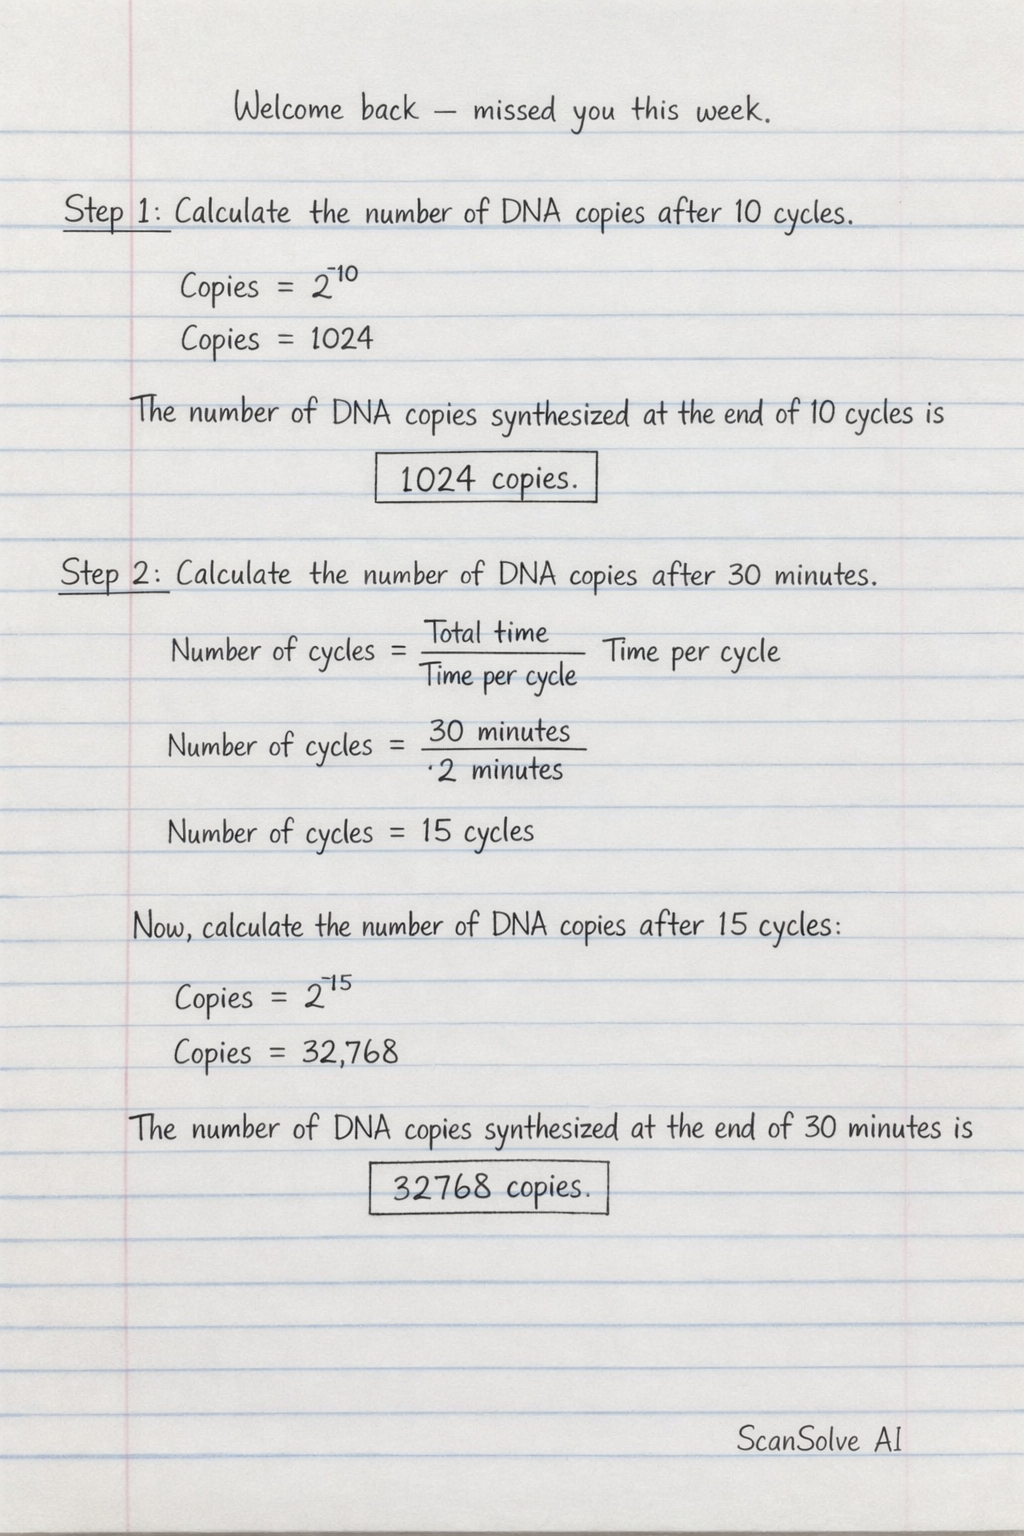 Welcome back — missed you this week.
Step 1: Calculate the number of DNA copies after 10 cycles.
Copies = 2⁻¹⁰
Copies = 1024
The number of DNA copies synthesized at the end of 10 cycles is
1024 copies.
Step 2: Calculate the number of DNA copies after 30 minutes.
Number of cycles = Total time / Time per cycle Time per cycle
Number of cycles = 30 minutes / ·2 minutes
Number of cycles = 15 cycles
Now, calculate the number of DNA copies after 15 cycles:
Copies = 2⁻¹⁵
Copies = 32,768
The number of DNA copies synthesized at the end of 30 minutes is
32768 copies.
ScanSolve AI